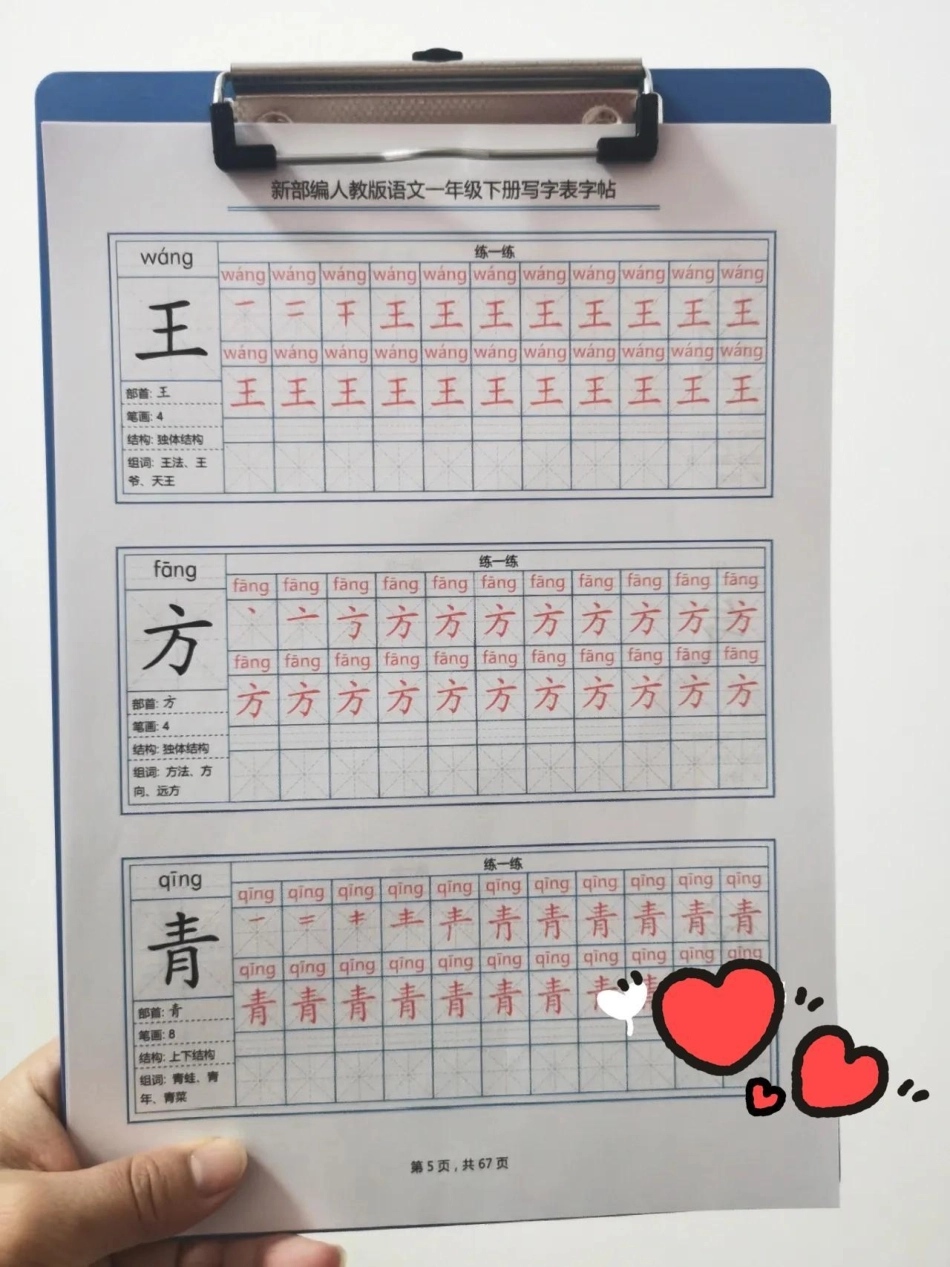 新部编人教版语文一年级下册写字表字帖
wáng
练一练
wáng wáng wáng wáng wáng wáng wáng wáng wáng wáng wáng
王
一 二 干 王 王 王 王 王 王 王 王
wáng wáng wáng wáng wáng wáng wáng wáng wáng wáng wáng
王 王 王 王 王 王 王 王 王 王 王
部首: 王
笔画: 4
结构: 独体结构
组词: 王法、王
爷、天王
fāng
练一练
fāng fāng fāng fāng fāng fāng fāng fāng fāng fāng fāng
方
丶 亠 亐 方 方 方 方 方 方 方 方
fāng fāng fāng fāng fāng fāng fāng fāng fāng fāng fāng
方 方 方 方 方 方 方 方 方 方 方
部首: 方
笔画: 4
结构: 独体结构
组词: 方法、方
向、远方
qīng
练一练
qīng qīng qīng qīng qīng qīng qīng qīng qīng qīng qīng
青
一 二 キ 龶 青 青 青 青 青
qīng qīng qīng qīng qīng qīng qīng qīng qīng qīng qīng
青 青 青 青 青 青 青 青
部首: 青
笔画: 8
结构: 上下结构
组词: 青蛙、青
年、青菜
第 5 页 , 共 67 页